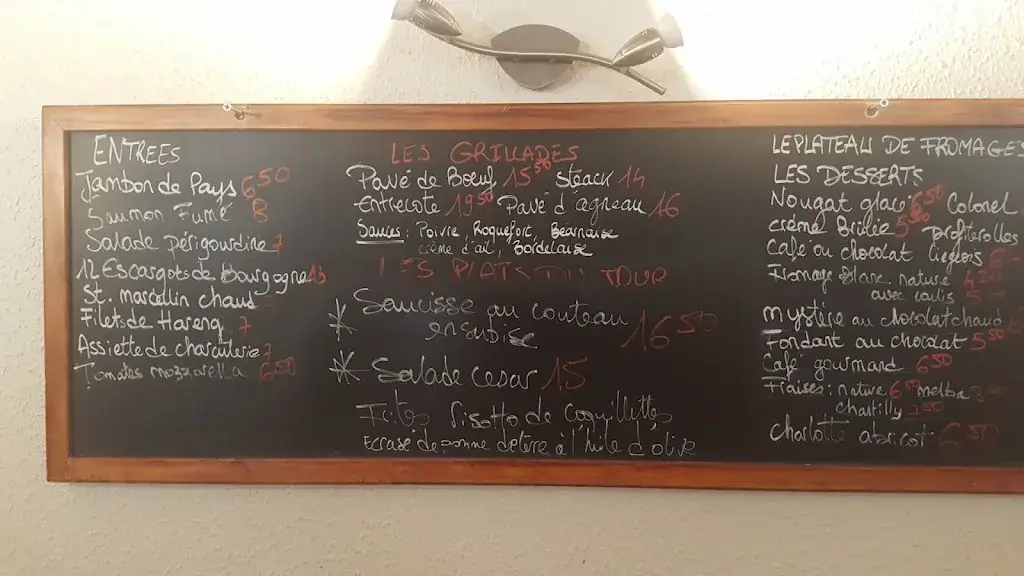 ENTREES
Jambon de Pays 6 50
Saumon Fumé 8
Salade périgourdine 7
12 Escargots de Bourgogne 13
St. marcellin chaud
Filets de Hareng 7
Assiette de charcuterie 7
Tomates mozzarella 6 50
LES GRILLADES
Pavé de Boeuf 15 50 Steack 14
Entrecote 19 50 Pavé d'agneau 16
Sauces : Poivre, Roquefort, Bearnaise
crème d'ail, Bordelaise
LES PLATS DU JOUR
Saucisse au couteau
16 50
Salade cesar 15
Frites Risotto de coquillettes
Ecrasé de pomme de terre à l'huile d'olive
LE PLATEAU DE FROMAGES
LES DESSERTS
Nougat glacé 6 50 Colonel
crème Brulée 5 50 profiterolles
Café ou chocolat liegeois
Fromage Blanc nature 4
avec coulis 5
mystère au chocolat chaud
Fondant au chocolat 5 50
Café gourmand 6 50
Fraises : nature 6 melba
chantilly
charlotte abricot 6 50